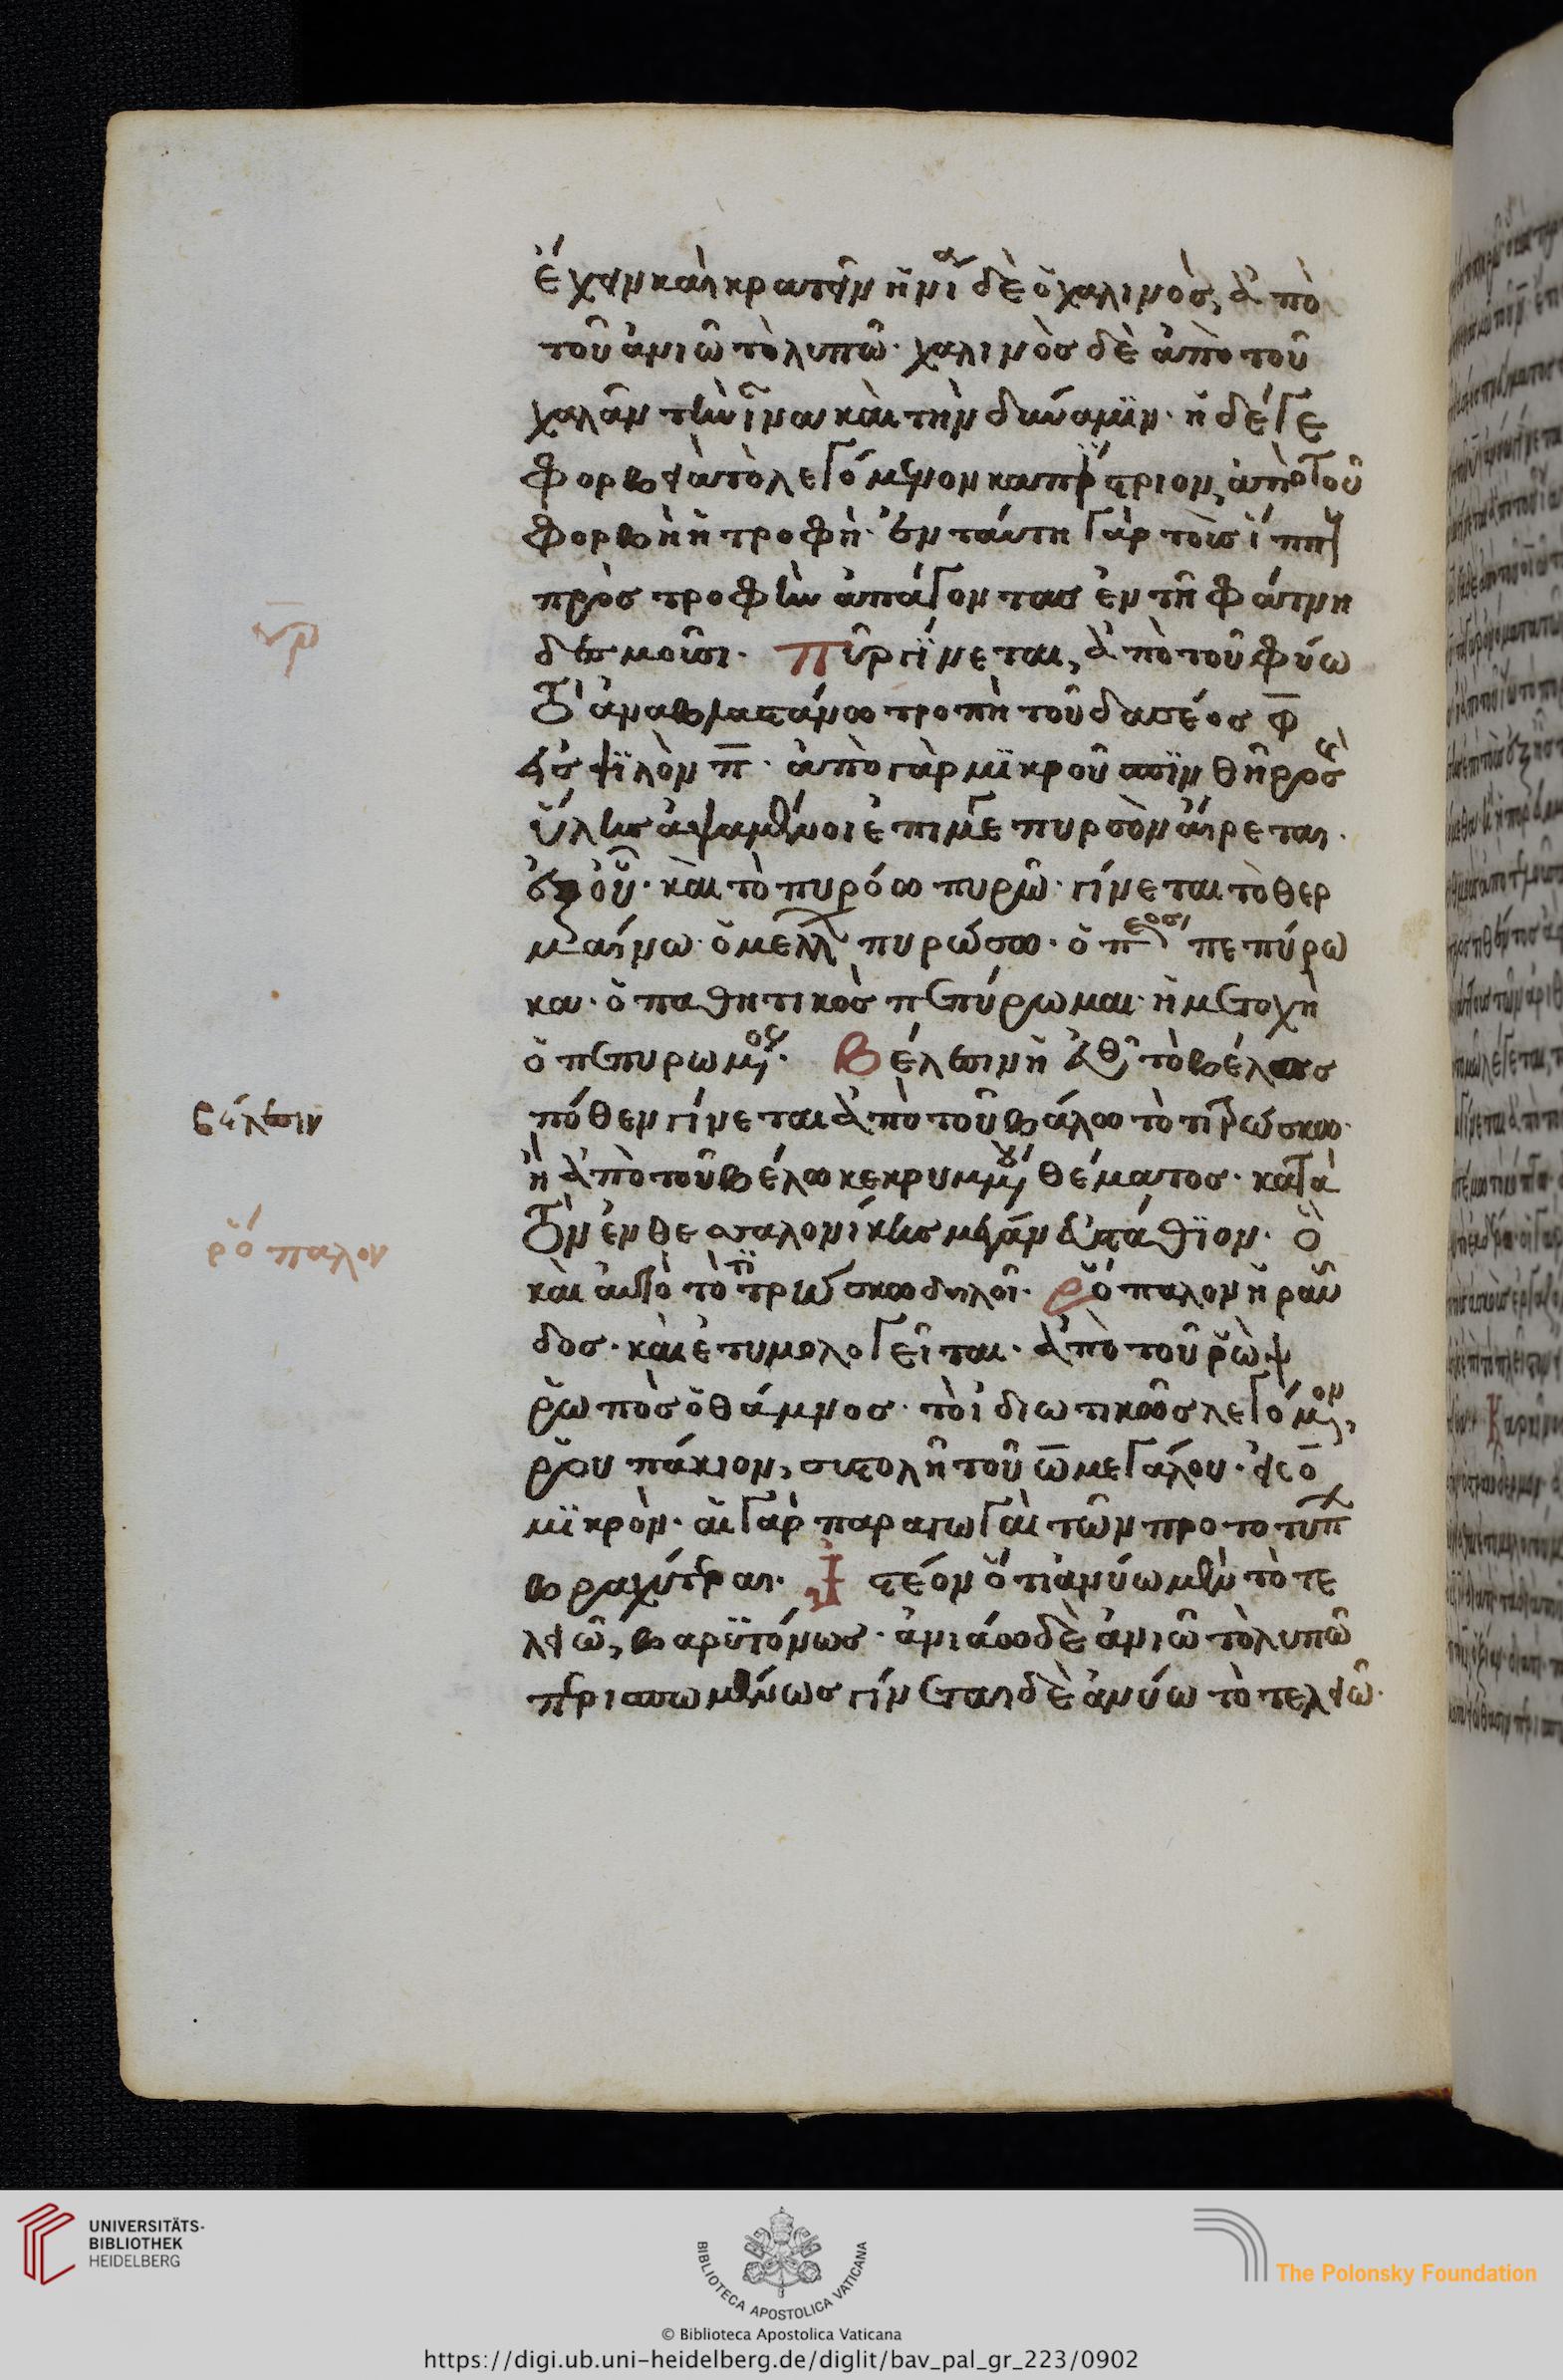 ἔχειν καὶ κρατεῖν ἡνία δὲ ὁ χαλινὸς, ἀπὸ
τοῦ ἀνιῶ τὸ λυπῶ· χαλινὸς δὲ ἀπὸ τοῦ
χαλᾶν τὴν ἶνα καὶ τὴν δύναμϊν· ἡ δέ γε
φορβειὰ τὸ λεγόμενον καπίστριον, ἀπὸ τοῦ
φορβὴ ἡ τροφὴ· ἐν ταύτη γὰρ τοὺς ἵππους
πρὸς τροφὴν ἀπάγοντας ἐν τῆ φάτνη
δεσμοῦσι· Πῦρ γίνεται, ἀπὸ τοῦ φύω
τὸ ἀναβλαστάνω τροπὴ τοῦ δασέος φ
εἰς ψϊλὸν π· ἀπὸ γὰρ μϊκροῦ σπϊνθῆρος
ὕλης ἁψαμένου ἐπὶ μέγα πυρσὸν αἴρεται·
ἐξ οὗ· καὶ τὸ πυρόω πυρῶ· γίνεται τὸ θερ
μαίνω· ὁ μέλλων πυρώσω· ὁ π πεπύρω
κα· ὁ παθητικὸς πεπύρωμαι· ἡ μετοχὴ
ὁ πεπυρωμένος· Βέλεσιν ἡ εὐθεῖα τὸ βέλος
πόθεν γίνεται ἀπὸ τοῦ βάλω τὸ τιτρώσκω·
ἢ ἀπὸ τοῦ βέλω κεκρυμμένου θέματος· κατὰ
τὸν ἐν θεσσαλονίκης μέγαν εὐστάθϊον· ὃ
καὶ αὐτὸ τὸ τιτρώσκω δηλοῖ· Ῥόπαλον ἡ ράβ
δος· καὶ ἐτυμολογεῖται· ἀπὸ τοῦ ῥὼψ
ῥωπὸς ὁ θάμνος· τὸ ἰδιωτικῶς λεγόμενον,
ῥουπάκιον, συστολῆ τοῦ ω μεγάλου· εἰς ο
μϊκρὸν· αἱ γὰρ παραγωγαὶ τῶν προτοτύπων
βραχύτεραι· Ἰστέον ὅτι ἀνύω μὲν τὸ τε
λειῶ, βαρϋτόνως· ἀνιάω δὲ ἀνιῶ τὸ λυπῶ
περισπωμένως γίνεται δὲ ἀνύω τὸ τελειῶ·
πῦρ
βέλεσιν
ῥόπαλον
UNIVERSITÄTS-
BIBLIOTHEK
HEIDELBERG
BIBLIOTECA APOSTOLICA VATICANA
The Polonsky Foundation
© Biblioteca Apostolica Vaticana
https://digi.ub.uni-heidelberg.de/diglit/bav_pal_gr_223/0902